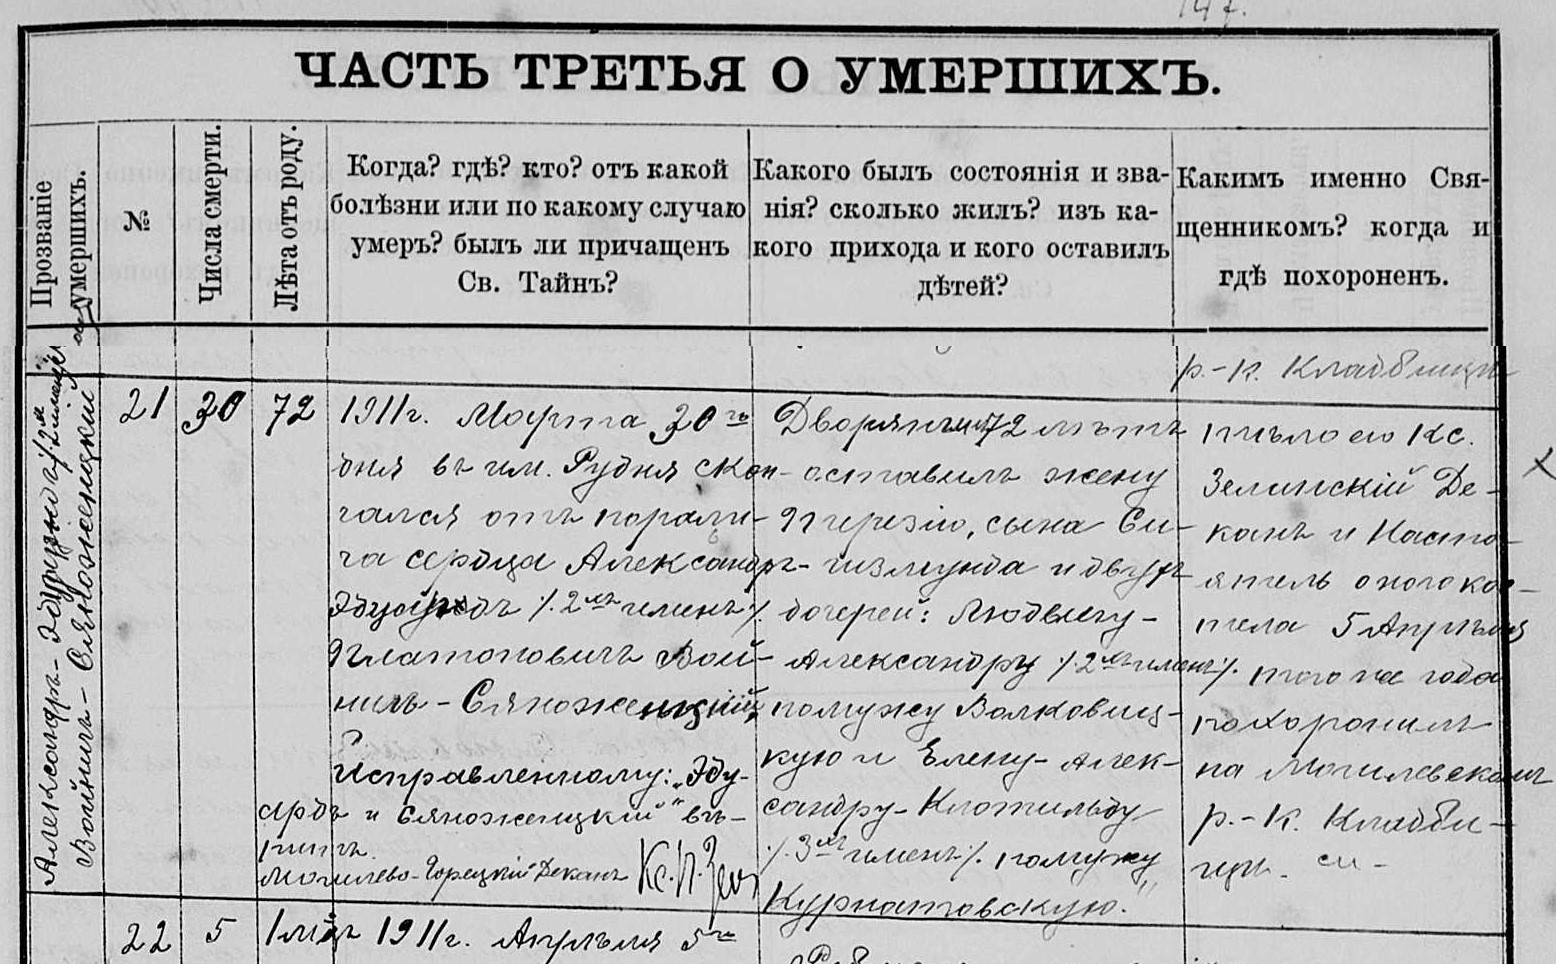 147.
ЧАСТЬ ТРЕТЬЯ О УМЕРШИХЪ.
Прозваніе
умершихъ.
№
Числа смерти.
Лѣта отъ роду.
Когда? гдѣ? кто? отъ какой
болѣзни или по какому случаю
умеръ? былъ ли причащенъ
Св. Тайнъ?
Какого былъ состоянія и зва-
нія? сколько жилъ? изъ ка-
кого прихода и кого оставилъ
дѣтей?
Какимъ именно Свя-
щенникомъ? когда и
гдѣ похороненъ.
р.-к. Кладбищи
Александръ-Эдуардъ
Войнилъ-Сяноженцкій
21
30
72
1911г. Марта 30го
дня въ им. Рудня скон-
чался отъ парали-
ча сердца Александръ-
Эдуардъ /.2хъ именъ/.
Платоновичъ Вой-
нилъ-Сяноженцкій,
Исправленному: "Эду-
ардъ и Сяноженцкій" вѣ-
рить.
Могилево-Горецкій Деканъ Кс. П. Зел
Дворянинъ 72 лѣтъ
оставилъ жену
Терезію, сына Си-
гизмунда и двухъ
дочерей: Людвигу-
Александру /.2хъ именъ/.
по мужу Волковиц-
кую и Елену-Алек-
сандру-Клотильду
/.3хъ именъ/. по мужу
Курнатовскую."
тѣло его Кс.
Зелинскій Де-
канъ и Насто-
ятель оного кос-
тела 5 Апрѣля
того же года
похоронилъ
на Могилевскомъ
р.-к. Кладби-
щи.
22
5
1 мѣс.
1911г. Апрѣля 5го